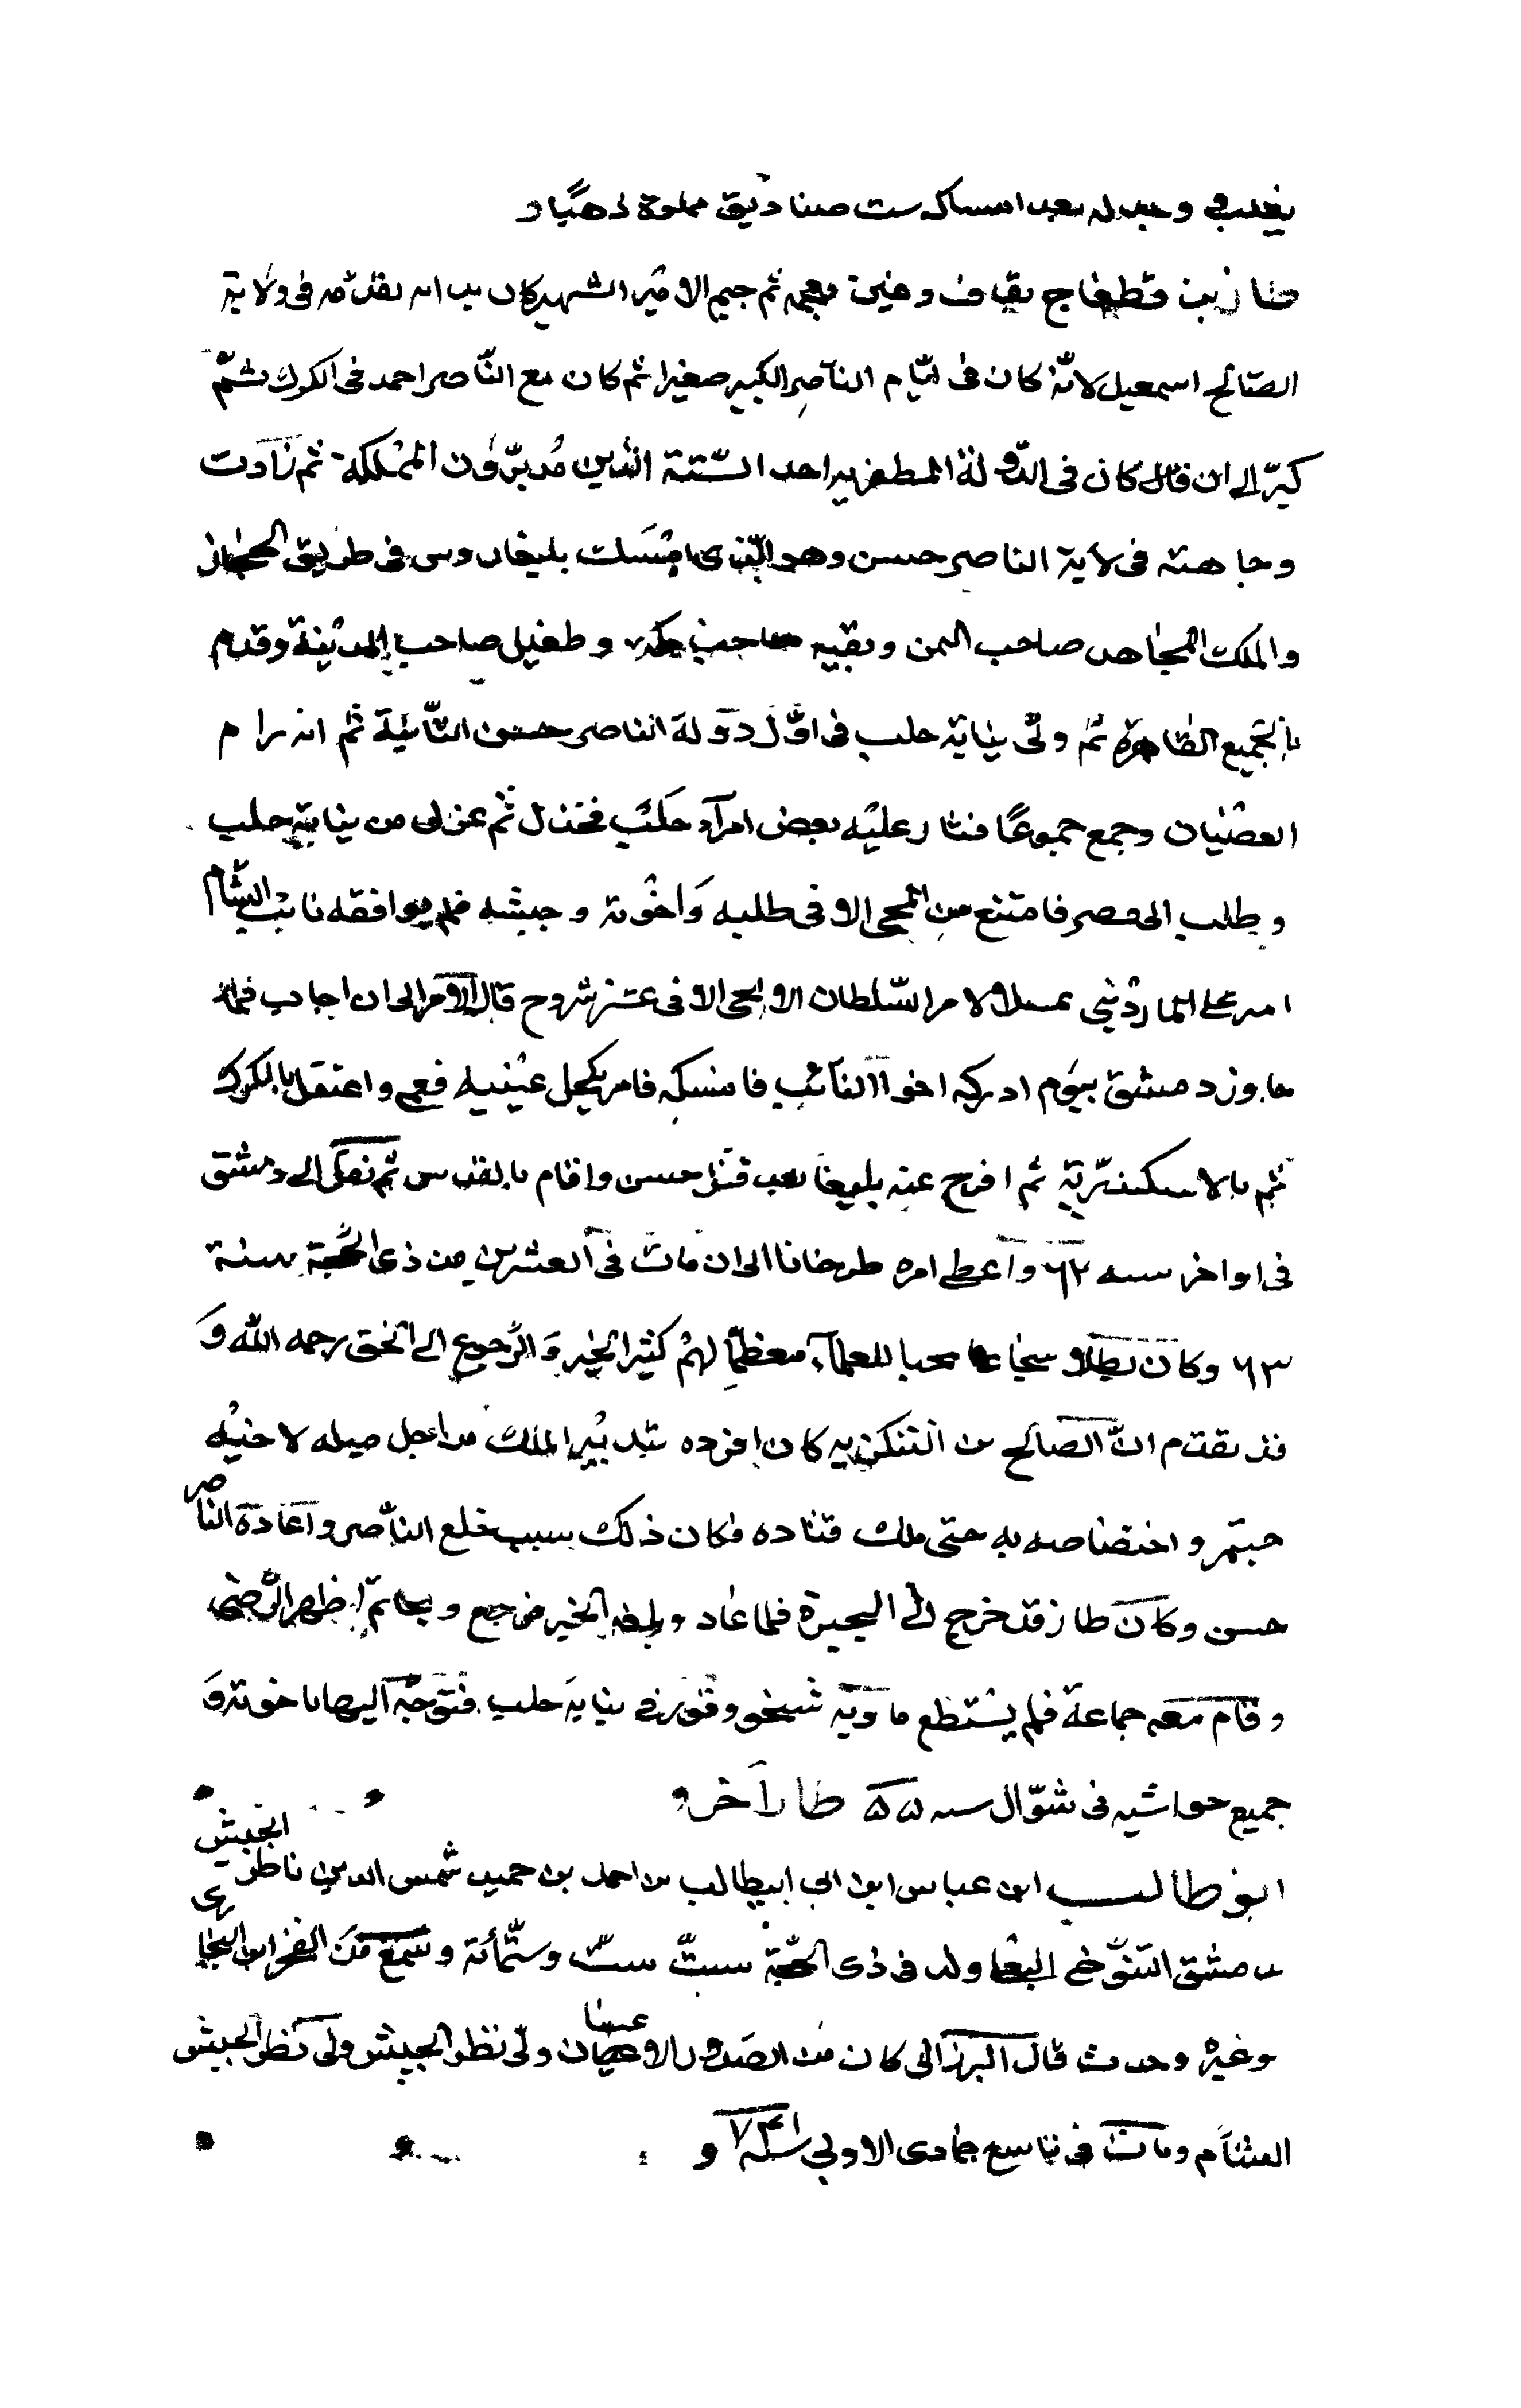 يغلب في وجد له بعد امساكه ست صناديق مملوة ذهبا و
طاز بن قطغاج بقاف وغين معجمة ثم جيم الامير الشهير كان بدا امه تقدمه فى ولاية
الصالح اسمعيل لانه كان فى ايام الناصر الكبير صغيرا ثم كان مع الناصر احمد فى الكرك ثم
كبر الى ان قال كان فى الدولة المظفريه احد الستة الذين مدبرون المملكة ثم زادت
وجاهته فى لاية الناصر حسن وهو الذى امسك بليغاروس فى طريق الحجاز
والملك المجاهد صاحب اليمن وبقيه صاحب مكه وطفيل صاحب المدينة وقدم
بالجميع القاهرة ثم ولى نيابة حلب فى اول دولة الناصر حسن الثانية ثم انه رام
العصيان وجمع جموعا فثار عليه بعض امرآء حلب فخذل ثم عزل من نيابة حلب
وطلب الى مصر فامتنع من المجى الا فى طلبه واخوته وجيشه فلم يوافقه نائب الشام
امير على الماردينى الامر السلطان الا يجى الا فى عشر سروج قال الامر الى ان اجاب فلما
جاوز دمشق بيوم ادركه اخوا النائب فامسكه فامر بكحل عينيه فعمى واعتقل بالكرك
ثم بالاسكندرية ثم افرج عنه يلبغا بعد قتل حسن واقام بالقدس ثم نقل الى دمشق
فى اواخر سنه ٦٢ واعطى امره طرخانا الى ان مات فى العشرين من ذى الحجة سنة
٦٣ وكان بطلا شجاعا محبا للعلمآء معظما لهم كثير الخير والرجوع الى الحق رحمه الله و
قد تقدم ان الصالح بن التنكزيه كان افرده بتدبير الملك من اجل ميله لاخيه
جنتمر واختصاصه به حتى ملك قتاده فكان ذلك بسبب خلع الناصر واعادة الناصر
حسن وكان طاز قد خرج الى البحيرة فلما عاد وبلغه الخبر فرجع اظهر الرضى
وقام معه جماعة فلم يستطع مقاومته شيخو وقرره فى نيابة حلب فتوجه اليها باخوته و
جميع حواشيه فى شوال سنه ٥٥ طار آخره
ابو طالب ابن عباس ابن ابى ابيطالب بن احمد بن حميد شمس الدين ناظر الجيش
دمشق التنوخى ولد فى ذى الحجة ست ست وستمائة وسمع من الفخر ابن البخارى
وغيره وحدث قال البرزالى كان من الصدور الاعيان ولى نظر الجيش ولى نظر الجيش
الشام ومات فى تاسع جمادى الاولى سنة ٧٣١ و